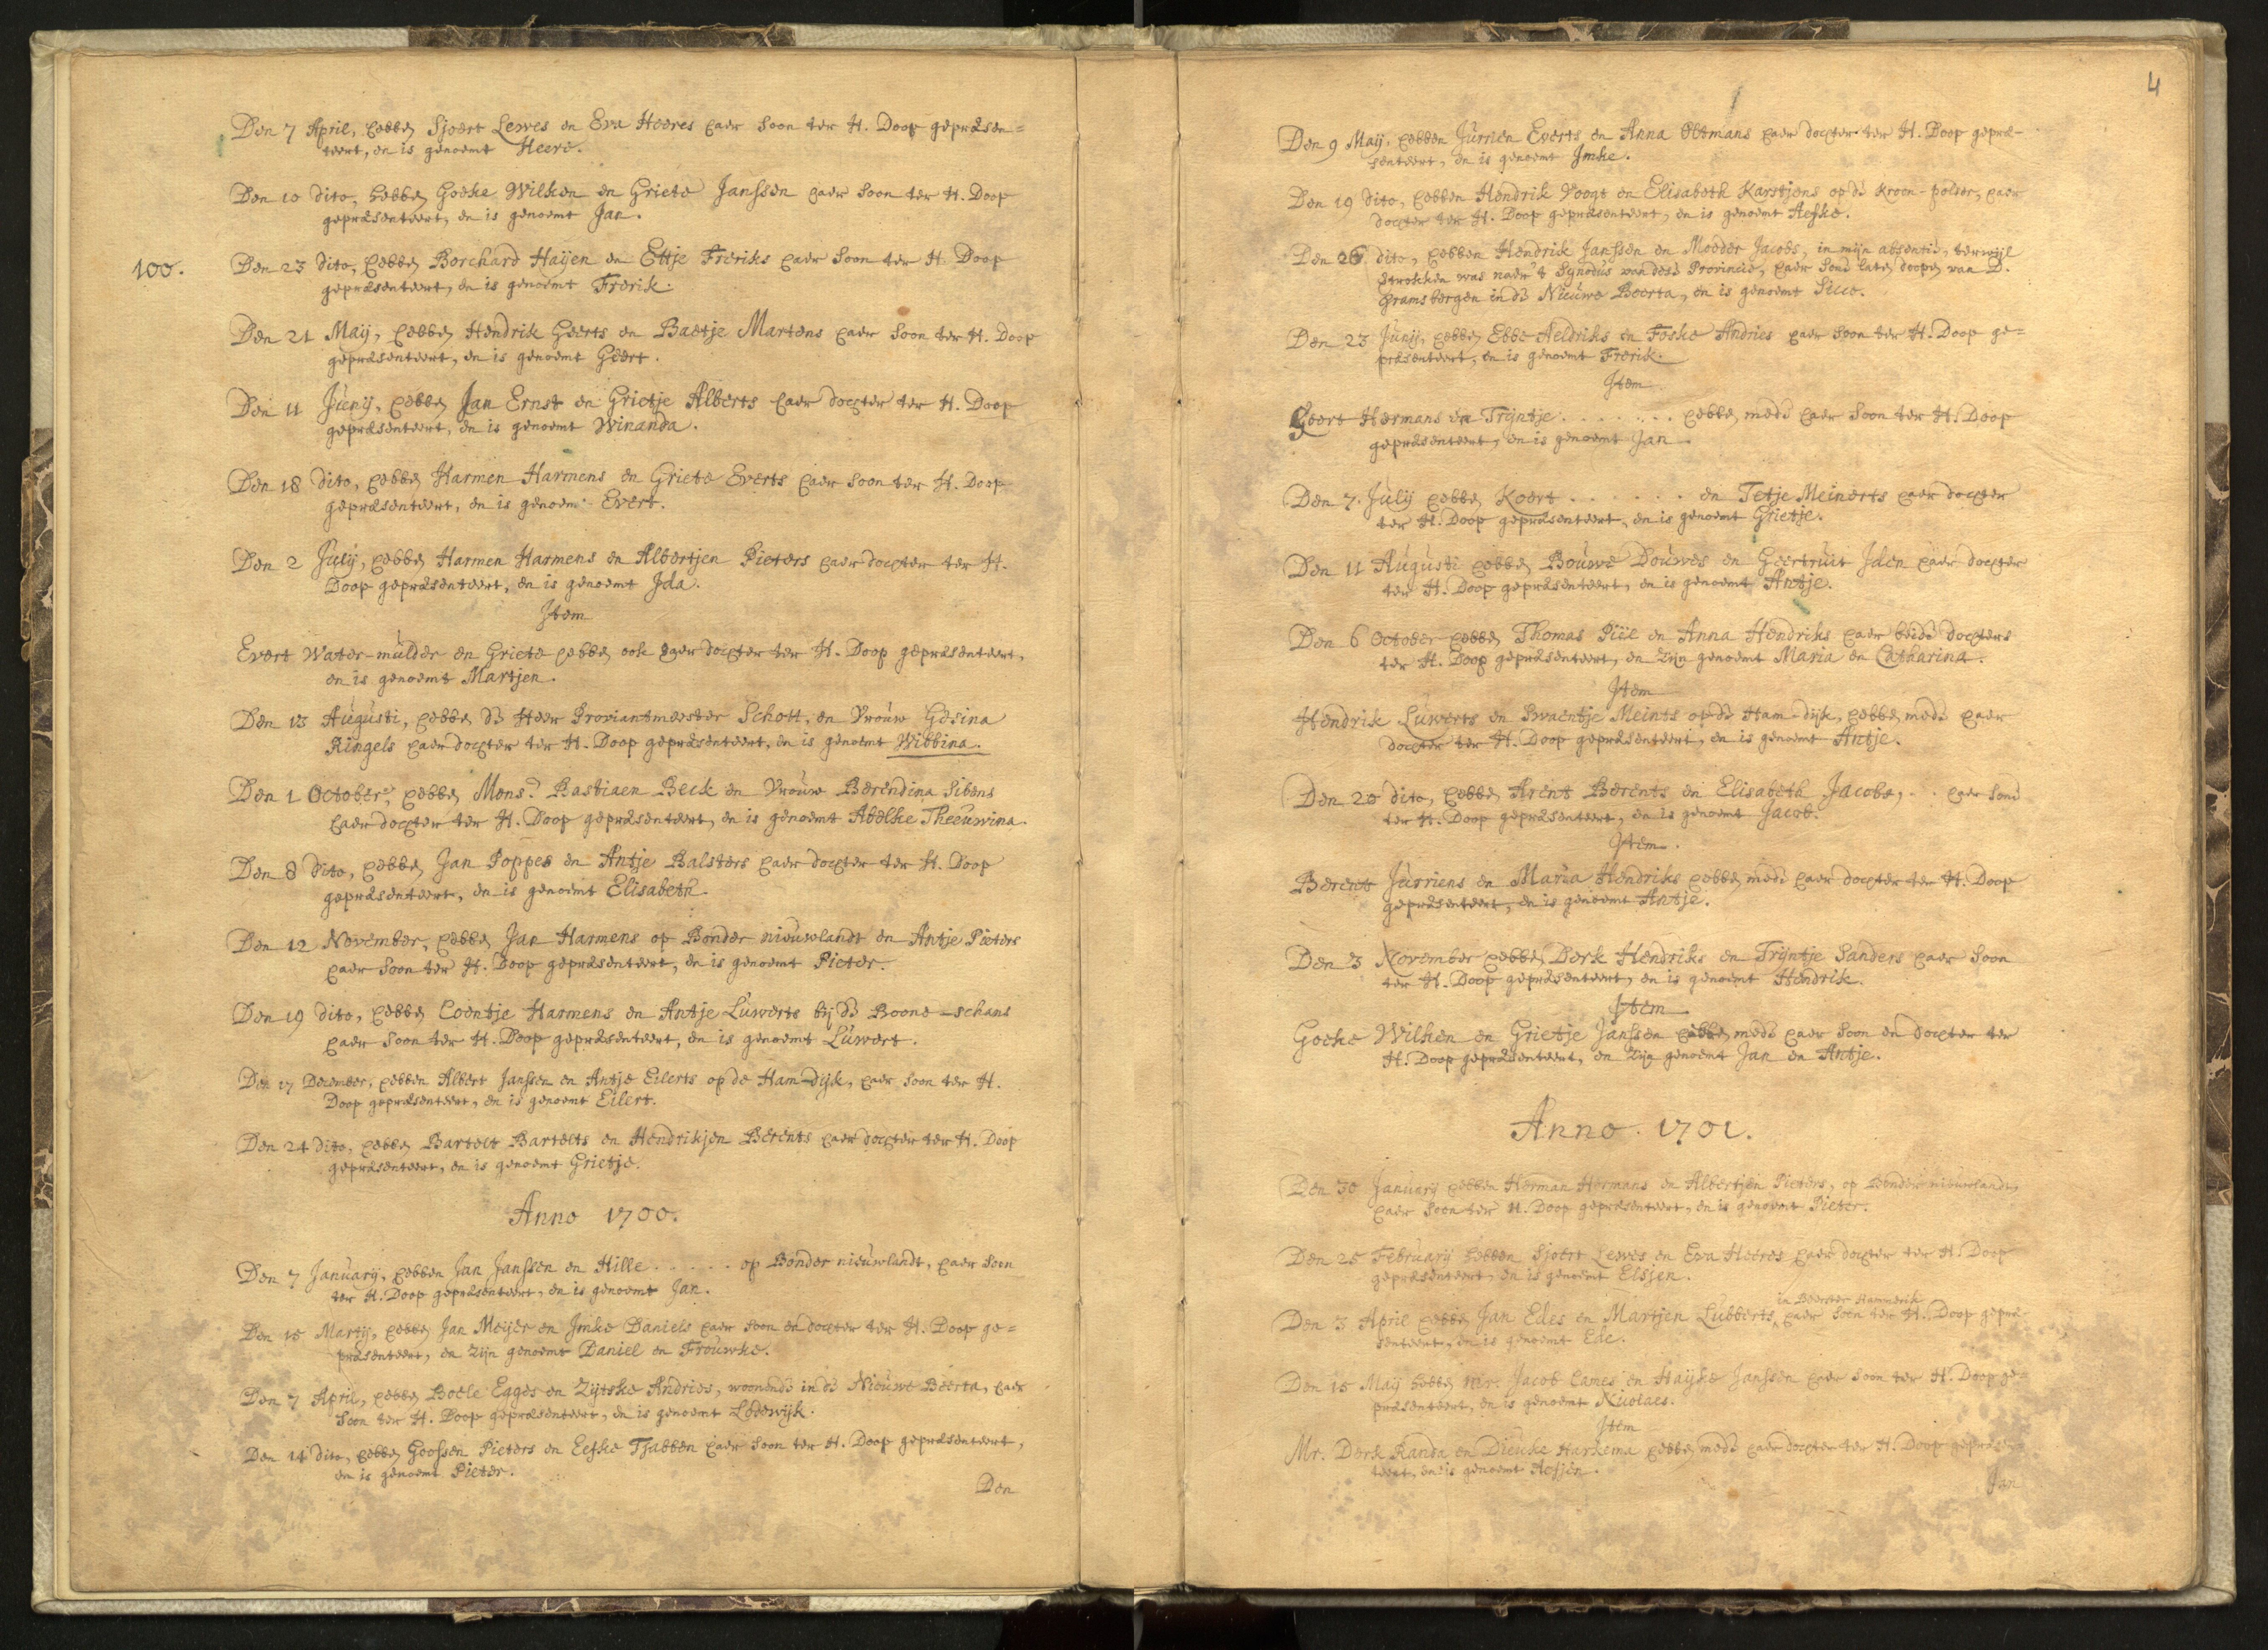 Den 7 April, hebben Sjoert Lewes en Eva Heeres haer soon ter H. Doop gepræsen=
teert, en is genoemt Heere.
Den 10 dito, hebben Goeke Wilken en Griete Janssen haer soon ter H. Doop
gepræsenteert, en is genoemt Jan.
100.
Den 23 dito, hebben Borchard Haijen en Ettje Freriks haer soon ter H. Doop
gepræsenteert, en is genoemt Frerik.
Den 21 Maij, hebben Hendrik Geerts en Baetje Martens haer soon ter H. Doop
gepræsenteert, en is genoemt Geert.
Den 11 Junij, hebben Jan Ernst en Grietje Alberts haer dochter ter H. Doop
gepræsenteert, en is genoemt Winanda.
Den 18 dito, hebben Harmen Harmens en Griete Everts haer soon ter H. Doop
gepræsenteert, en is genoemt Evert.
Den 2 Julij, hebben Harmen Harmens en Albertjen Pieters haer dochter ter H.
Doop gepræsenteert, en is genoemt Ida.
Item
Evert Water-mulder en Griete hebben ook haer dochter ter H. Doop gepræsenteert,
en is genoemt Martjen.
Den 13 Augusti, hebben de Heer Proviantmeester Schott, en Vrouw Gesina
Ringels haer dochter ter H. Doop gepræsenteert, en is genoemt Wibbina.
Den 1 October, hebben Mons.r Bastiaen Beck en Vrouw Berendina Sibens
haer dochter ter H. Doop gepræsenteert, en is genoemt Abelke Theeuwina.
Den 8 dito, hebben Jan Poppes en Antje Balsters haer dochter ter H. Doop
gepræsenteert, en is genoemt Elisabeth.
Den 12 November, hebben Jan Harmens op Bonder nieuwlandt en Antje Pieters
haer soon ter H. Doop gepræsenteert, en is genoemt Pieter.
Den 19 dito, hebben Coentje Harmens en Antje Luwerts bij de Boone-schans
haer soon ter H. Doop gepræsenteert, en is genoemt Luwert.
Den 17 December, hebben Albert Janssen en Antje Eilerts op de Ham-Dijk, haer soon ter H.
Doop gepræsenteert, en is genoemt Eilert.
Den 24 dito, hebben Bartelt Bartelts en Hendrikjen Berents haer dochter ter H. Doop
gepræsenteert, en is genoemt Grietje.
Anno 1700.
Den 7 January, hebben Jan Janssen en Hille ..... op Bonder nieuwlandt, haer soon
ter H. Doop gepræsenteert, en is genoemt Jan.
Den 15 Martij, hebben Jan Meijer en Imke Daniels haer soon en dochter ter H. Doop ge=
præsenteert, en zijn genoemt Daniel en Frouwke.
Den 7 April, hebben Boele Egges en Zijtske Andries, woonende in de Nieuwe Beerta, haer
soon ter H. Doop gepræsenteert, en is genoemt Lodewijk.
Den 14 dito, hebben Goossen Pieters en Eefke Tjabben haer soon ter H. Doop gepræsenteert,
en is genoemt Pieter.
Den
4
Den 9 Maij, hebben Jurrien Everts en Anna Oltmans haer dochter ter H. Doop gepræ-
senteert, en is genoemt Imke.
Den 19 dito, hebben Hendrik Voogt en Elisabeth Karstjens op de Kroon-polder, haer
dochter ter H. Doop gepræsenteert, en is genoemt Aefke.
Den 26 dito, hebben Hendrik Janssen en Modder Jacobs, in mijn absentie, terwijl
vertrokken was naer 't Synodus van dese Provincie, haer sone laten doopen van D.
Gramsbergen in de Nieuwe Beerta, en is genoemt Sicco.
Den 23 Junij, hebben Ebbe Aeldriks en Foske Andries haer soon ter H. Doop ge=
præsenteert, en is genoemt Frerik.
Item
Geert Harmans en Trijntje ........ hebben mede haer soon ter H. Doop
gepræsenteert, en is genoemt Jan.
Den 7. Julij hebben Koert ...... en Tetje Meinerts haer dochter
ter H. Doop gepræsenteert, en is genoemt Grietje.
Den 11 Augusti hebben Bouwe Douwes en Geertruit Iden haer dochter
ter H. Doop gepræsenteert, en is genoemt Antje.
Den 6 October hebben Thomas Piël en Anna Hendriks haer beide dochters
ter H. Doop gepræsenteert, en zijn genoemt Maria en Catharina.
Item
Hendrik Luwerts en Swaentje Meints op de Ham-dijk, hebben mede haer
dochter ter H. Doop gepræsenteert, en is genoemt Antje.
Den 20 dito, hebben Arent Berents en Elisabeth Jacobs, .. haer sone
ter H. Doop gepræsenteert, en is genoemt Jacob.
Item.
Berent Jurriens en Maria Hendriks hebben mede haer dochter ter H. Doop
gepræsenteert, en is genoemt Antje.
Den 3 November hebben Derk Hendriks en Trijntje Sanders haer soon
ter H. Doop gepræsenteert, en is genoemt Hendrik.
Item
Goeke Wilken en Grietje Janssen hebben mede haer soon en dochter ter
H. Doop gepræsenteert, en zijn genoemt Jan en Antje.
Anno 1701.
Den 30 January hebben Herman Hermans en Albertjen Pieters, op Bonder nieuwlandt,
haer soon ter H. Doop gepræsenteert, en is genoemt Pieter.
Den 25 February hebben Sjoert Lewes en Eva Heeres haer dochter ter H. Doop
gepræsenteert, en is genoemt Elsjen.
in Beerster Hammerik
Den 3 April hebben Jan Edes en Martjen Lubberts, haer soon ter H. Doop gepræ-
senteert, en is genoemt Ede.
Den 15 Maij hebben Mr. Jacob Cames en Haijke Janssen haer soon ter H. Doop ge-
præsenteert, en is genoemt Nicolaes.
Item
Mr. Derk Randa en Dieuke Harkema hebben mede haer dochter ter H. Doop gepræsen-
teert, en is genoemt Aefjen.
Jan